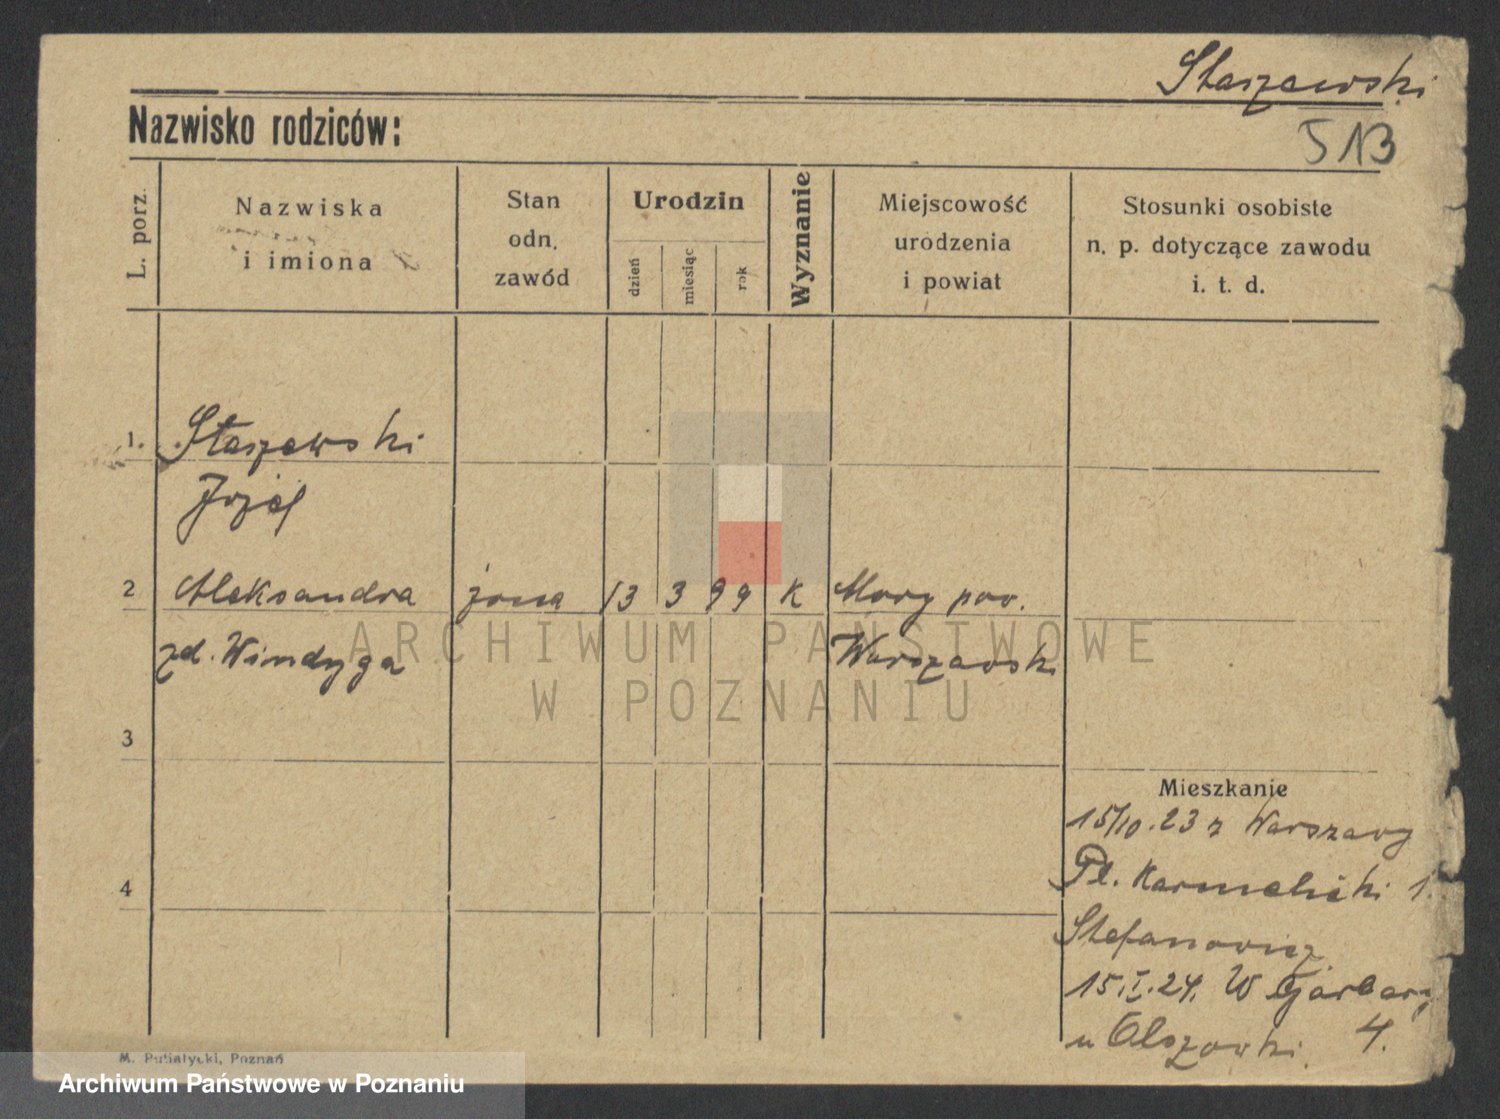 Staszewski
513
Nazwisko rodziców:
L. porz.
Nazwiska
i imiona
Stan
odn.
zawód
Urodzin
dzień
miesiąc
rok
Wyznanie
Miejscowość
urodzenia
i powiat
Stosunki osobiste
n. p. dotyczące zawodu
i. t. d.
1. Staszewski
Józef
2 Aleksandra żona 13 3 99 K Mory pow.
zd. Windyga Warszawski
ARCHIWUM PAŃSTWOWE
W POZNANIU
3
Mieszkanie
15/10.23 z Warszawy
4
Pl. Karmelicki 1.
Stefanowicz
15.I.24. W Garbary
u Olszowski 4.
M. Putiatycki, Poznań
Archiwum Państwowe w Poznaniu